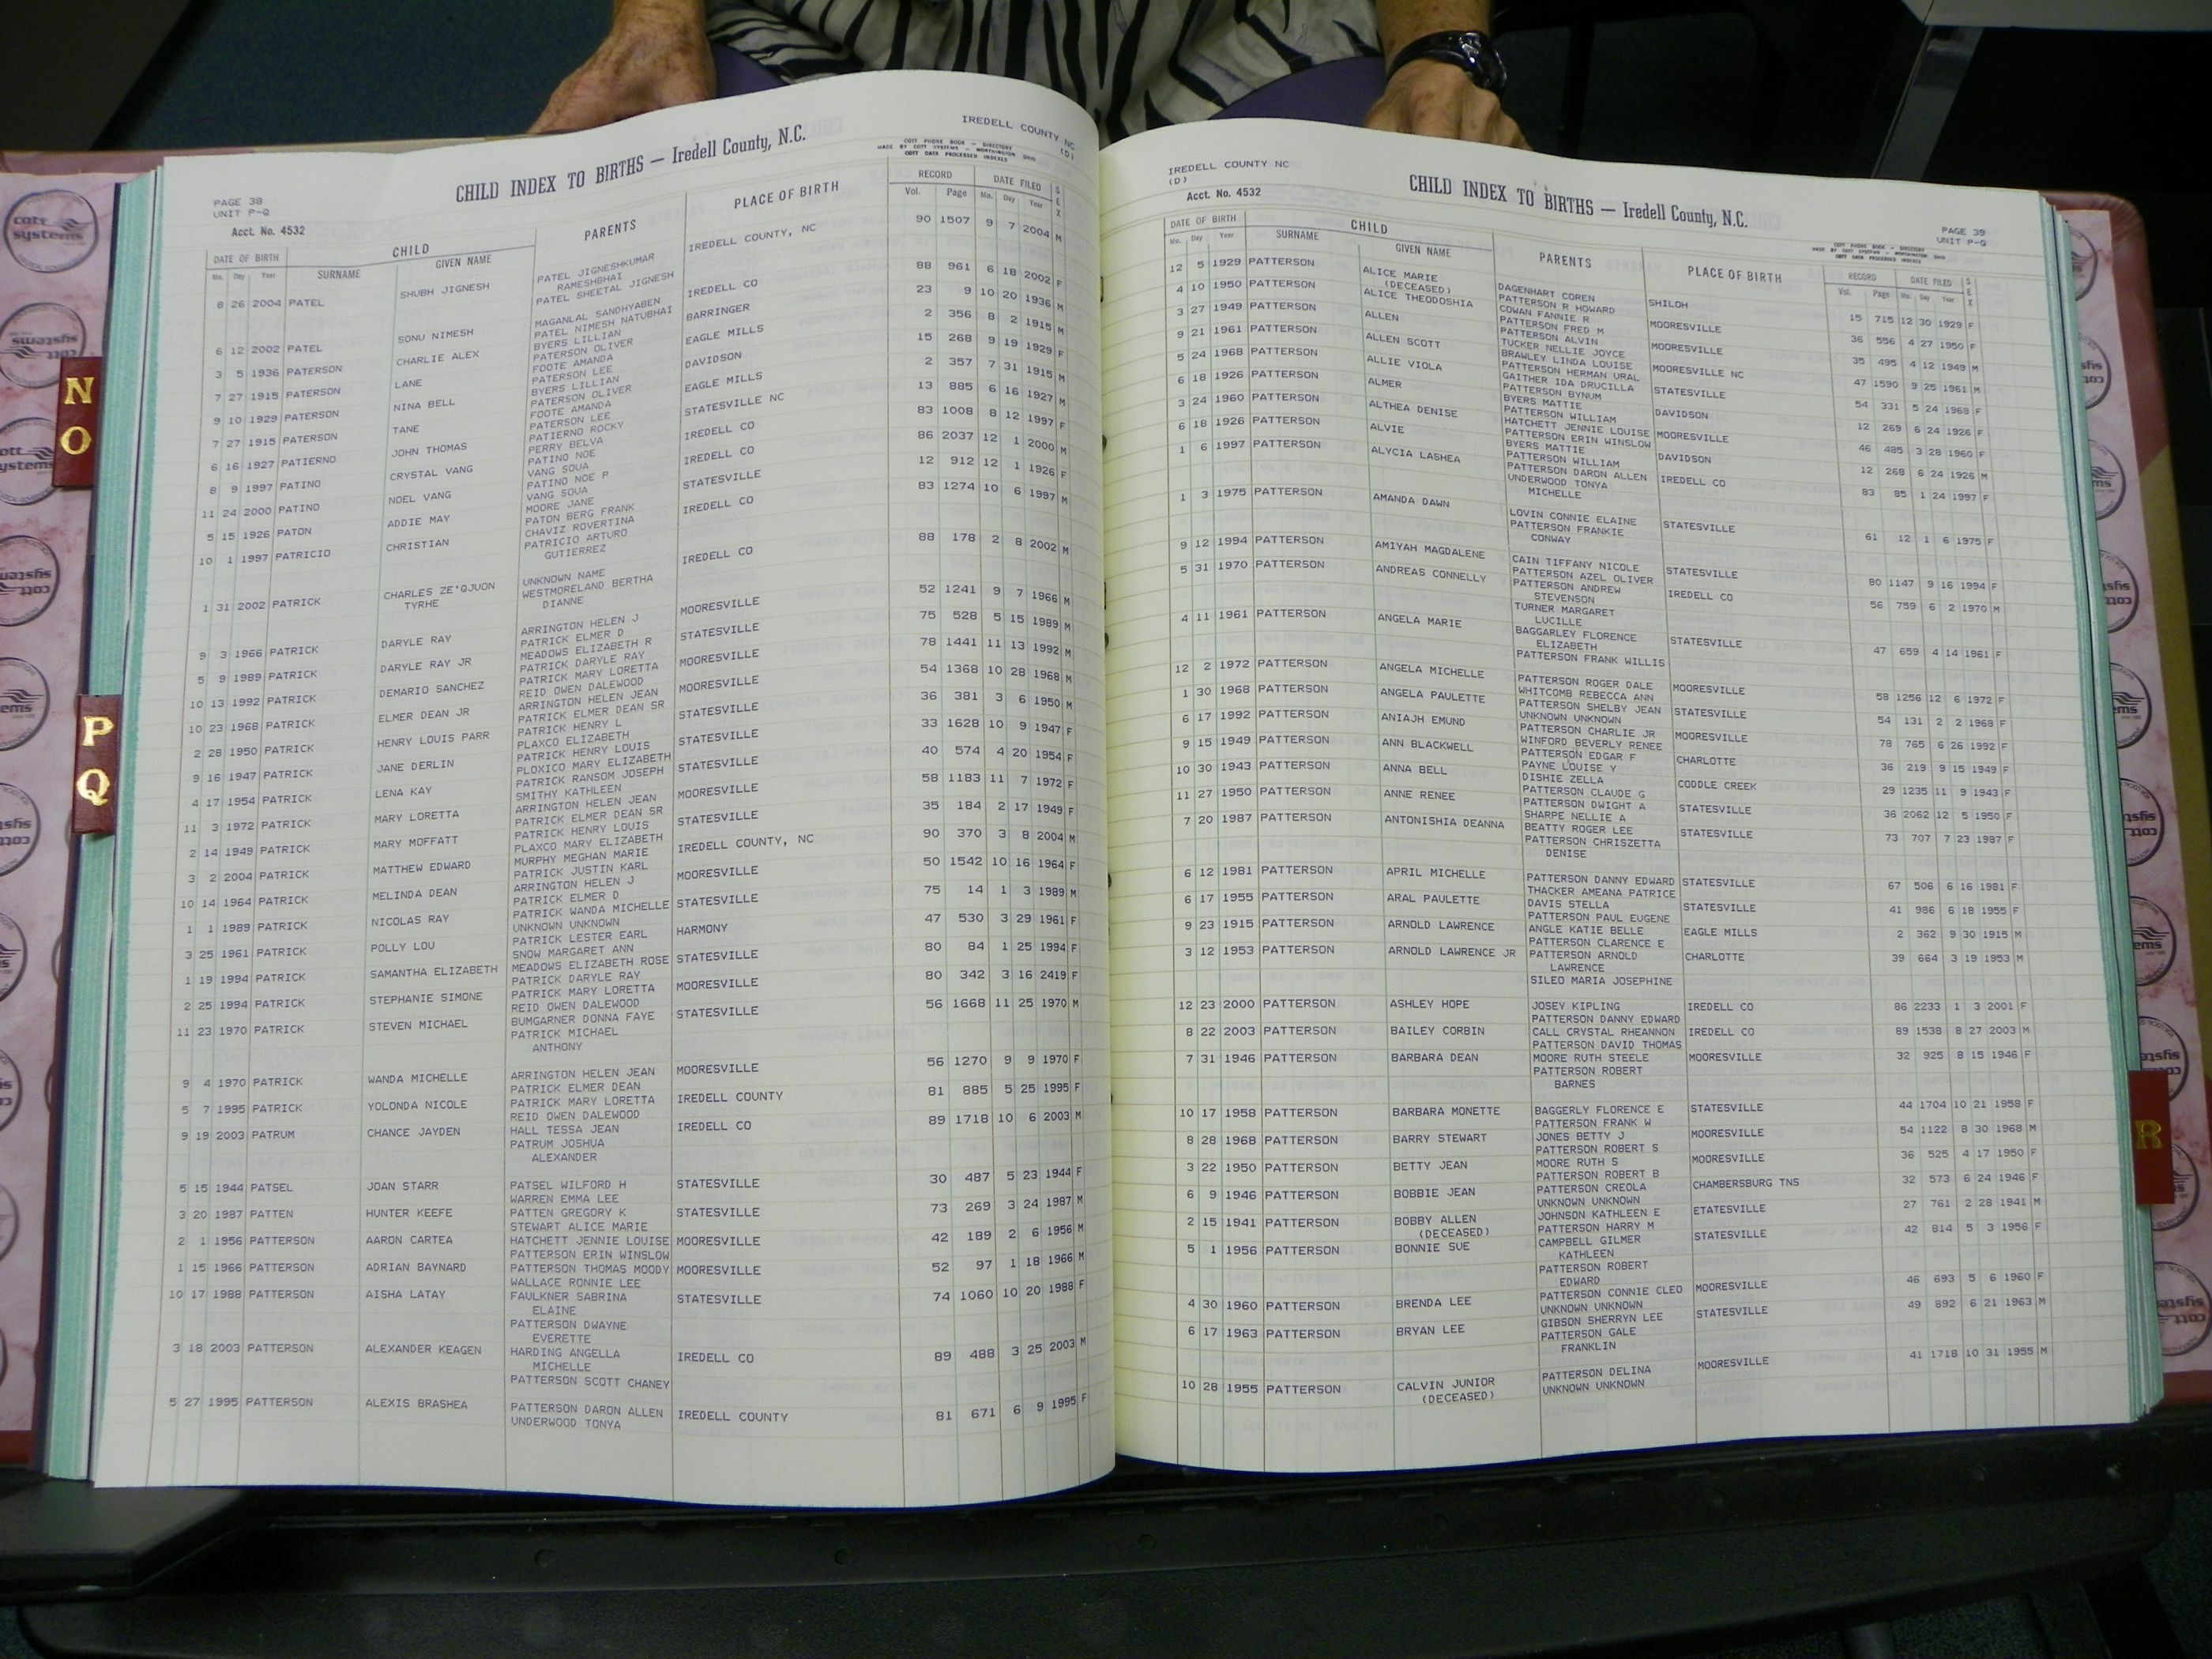 cott systems
N
O
P
Q
R
IREDELL COUNTY NC
(D)
COTT PHONE BOOK — DIRECTORY
MADE BY COTT SYSTEMS — WORTHINGTON, OHIO
COTT DATA PROCESSED INDEXES
CHILD INDEX TO BIRTHS — Iredell County, N.C.
PAGE 38
UNIT P-Q
Acct. No. 4532
DATE OF BIRTH CHILD PARENTS PLACE OF BIRTH RECORD DATE FILED SEX
Mo. Day Year SURNAME GIVEN NAME Vol. Page Mo. Day Year
8 26 2004 PATEL SHUBH JIGNESH PATEL JIGNESHKUMAR IREDELL COUNTY, NC 90 1507 9 7 2004 M
RAMESHBHAI
PATEL SHEETAL JIGNESH
6 12 2002 PATEL SONU NIMESH MAGANLAL SANDHYABEN IREDELL CO 88 961 6 18 2002 F
PATEL NIMESH NATUBHAI
3 5 1936 PATERSON CHARLIE ALEX BYERS LILLIAN BARRINGER 23 9 10 20 1936 M
PATERSON OLIVER
7 27 1915 PATERSON LANE FOOTE AMANDA EAGLE MILLS 2 356 8 2 1915 M
PATERSON LEE
9 10 1929 PATERSON NINA BELL BYERS LILLIAN DAVIDSON 15 268 9 19 1929 F
PATERSON OLIVER
7 27 1915 PATERSON TANE FOOTE AMANDA EAGLE MILLS 2 357 7 31 1915 M
PATERSON LEE
6 16 1927 PATIERNO JOHN THOMAS PATIERNO ROCKY STATESVILLE NC 13 885 6 16 1927 M
PERRY BELVA
8 9 1997 PATINO CRYSTAL VANG PATINO NOE IREDELL CO 83 1008 8 12 1997 F
VANG SOUA
11 24 2000 PATINO NOEL VANG PATINO NOE P IREDELL CO 86 2037 12 1 2000 M
VANG SOUA
5 15 1926 PATON ADDIE MAY MOORE JANE STATESVILLE 12 912 12 1 1926 F
PATON BERG FRANK
10 1 1997 PATRICIO CHRISTIAN CHAVIZ ROVERTINA IREDELL CO 83 1274 10 6 1997 M
PATRICIO ARTURO
GUTIERREZ
1 31 2002 PATRICK CHARLES ZE'QJUON UNKNOWN NAME IREDELL CO 88 178 2 8 2002 M
TYRHE WESTMORELAND BERTHA
DIANNE
9 3 1966 PATRICK DARYLE RAY ARRINGTON HELEN J MOORESVILLE 52 1241 9 7 1966 M
PATRICK ELMER D
5 9 1989 PATRICK DARYLE RAY JR MEADOWS ELIZABETH R STATESVILLE 75 528 5 15 1989 M
PATRICK DARYLE RAY
10 13 1992 PATRICK DEMARIO SANCHEZ PATRICK MARY LORETTA MOORESVILLE 78 1441 11 13 1992 M
REID OWEN DALEWOOD
10 23 1968 PATRICK ELMER DEAN JR ARRINGTON HELEN JEAN MOORESVILLE 54 1368 10 28 1968 M
PATRICK ELMER DEAN SR
2 28 1950 PATRICK HENRY LOUIS PARR PATRICK HENRY L STATESVILLE 36 381 3 6 1950 M
PLAXCO ELIZABETH
9 16 1947 PATRICK JANE DERLIN PATRICK HENRY LOUIS STATESVILLE 33 1628 10 9 1947 F
PLOXICO MARY ELIZABETH
4 17 1954 PATRICK LENA KAY PATRICK RANSOM JOSEPH STATESVILLE 40 574 4 20 1954 F
SMITHY KATHLEEN
11 3 1972 PATRICK MARY LORETTA ARRINGTON HELEN JEAN MOORESVILLE 58 1183 11 7 1972 F
PATRICK ELMER DEAN SR
2 14 1949 PATRICK MARY MOFFATT PATRICK HENRY LOUIS STATESVILLE 35 184 2 17 1949 F
PLAXCO MARY ELIZABETH
3 2 2004 PATRICK MATTHEW EDWARD MURPHY MEGHAN MARIE IREDELL COUNTY, NC 90 370 3 8 2004 M
PATRICK JUSTIN KARL
10 14 1964 PATRICK MELINDA DEAN ARRINGTON HELEN J MOORESVILLE 50 1542 10 16 1964 F
PATRICK ELMER D
1 1 1989 PATRICK NICOLAS RAY PATRICK WANDA MICHELLE STATESVILLE 75 14 1 3 1989 M
UNKNOWN UNKNOWN
3 25 1961 PATRICK POLLY LOU PATRICK LESTER EARL HARMONY 47 530 3 29 1961 F
SNOW MARGARET ANN
1 19 1994 PATRICK SAMANTHA ELIZABETH MEADOWS ELIZABETH ROSE STATESVILLE 80 84 1 25 1994 F
PATRICK DARYLE RAY
2 25 1994 PATRICK STEPHANIE SIMONE PATRICK MARY LORETTA MOORESVILLE 80 342 3 16 2419 F
REID OWEN DALEWOOD
11 23 1970 PATRICK STEVEN MICHAEL BUMGARNER DONNA FAYE STATESVILLE 56 1668 11 25 1970 M
PATRICK MICHAEL
ANTHONY
9 4 1970 PATRICK WANDA MICHELLE ARRINGTON HELEN JEAN MOORESVILLE 56 1270 9 9 1970 F
PATRICK ELMER DEAN
5 7 1995 PATRICK YOLONDA NICOLE PATRICK MARY LORETTA IREDELL COUNTY 81 885 5 25 1995 F
REID OWEN DALEWOOD
9 19 2003 PATRUM CHANCE JAYDEN HALL TESSA JEAN IREDELL CO 89 1718 10 6 2003 M
PATRUM JOSHUA
ALEXANDER
5 15 1944 PATSEL JOAN STARR PATSEL WILFORD H STATESVILLE 30 487 5 23 1944 F
WARREN EMMA LEE
3 20 1987 PATTEN HUNTER KEEFE PATTEN GREGORY K STATESVILLE 73 269 3 24 1987 M
STEWART ALICE MARIE
2 1 1956 PATTERSON AARON CARTEA HATCHETT JENNIE LOUISE MOORESVILLE 42 189 2 6 1956 M
PATTERSON ERIN WINSLOW
1 15 1966 PATTERSON ADRIAN BAYNARD PATTERSON THOMAS MOODY MOORESVILLE 52 97 1 18 1966 M
WALLACE RONNIE LEE
10 17 1988 PATTERSON AISHA LATAY FAULKNER SABRINA STATESVILLE 74 1060 10 20 1988 F
ELAINE
PATTERSON DWAYNE
EVERETTE
3 18 2003 PATTERSON ALEXANDER KEAGEN HARDING ANGELLA IREDELL CO 89 488 3 25 2003 M
MICHELLE
PATTERSON SCOTT CHANEY
5 27 1995 PATTERSON ALEXIS BRASHEA PATTERSON DARON ALLEN IREDELL COUNTY 81 671 6 9 1995 F
UNDERWOOD TONYA
IREDELL COUNTY NC
(D)
Acct. No. 4532
CHILD INDEX TO BIRTHS — Iredell County, N.C.
PAGE 39
UNIT P-Q
COTT PHONE BOOK — DIRECTORY
MADE BY COTT SYSTEMS — WORTHINGTON, OHIO
COTT DATA PROCESSED INDEXES
DATE OF BIRTH CHILD PARENTS PLACE OF BIRTH RECORD DATE FILED SEX
Mo. Day Year SURNAME GIVEN NAME Vol. Page Mo. Day Year
12 5 1929 PATTERSON ALICE MARIE DAGENHART COREN SHILOH 15 715 12 30 1929 F
(DECEASED) PATTERSON R HOWARD
4 10 1950 PATTERSON ALICE THEODOSHIA COWAN FANNIE R MOORESVILLE 36 556 4 27 1950 F
PATTERSON FRED M
3 27 1949 PATTERSON ALLEN PATTERSON ALVIN MOORESVILLE 35 495 4 12 1949 M
TUCKER NELLIE JOYCE
9 21 1961 PATTERSON ALLEN SCOTT BRAWLEY LINDA LOUISE MOORESVILLE NC 47 1590 9 25 1961 M
PATTERSON HERMAN URAL
5 24 1968 PATTERSON ALLIE VIOLA GAITHER IDA DRUCILLA STATESVILLE 54 331 5 24 1968 F
PATTERSON BYNUM
6 18 1926 PATTERSON ALMER BYERS MATTIE DAVIDSON 12 269 6 24 1926 F
PATTERSON WILLIAM
3 24 1960 PATTERSON ALTHEA DENISE HATCHETT JENNIE LOUISE MOORESVILLE 46 485 3 28 1960 F
PATTERSON ERIN WINSLOW
6 18 1926 PATTERSON ALVIE BYERS MATTIE DAVIDSON 12 268 6 24 1926 M
PATTERSON WILLIAM
1 6 1997 PATTERSON ALYCIA LASHEA PATTERSON DARON ALLEN IREDELL CO 83 85 1 24 1997 F
UNDERWOOD TONYA
MICHELLE
1 3 1975 PATTERSON AMANDA DAWN LOVIN CONNIE ELAINE STATESVILLE 61 12 1 6 1975 F
PATTERSON FRANKIE
CONWAY
9 12 1994 PATTERSON AMIYAH MAGDALENE CAIN TIFFANY NICOLE STATESVILLE 80 1147 9 16 1994 F
PATTERSON AZEL OLIVER
5 31 1970 PATTERSON ANDREAS CONNELLY PATTERSON ANDREW IREDELL CO 56 759 6 2 1970 M
STEVENSON
TURNER MARGARET
LUCILLE
4 11 1961 PATTERSON ANGELA MARIE BAGGARLEY FLORENCE STATESVILLE 47 659 4 14 1961 F
ELIZABETH
PATTERSON FRANK WILLIS
12 2 1972 PATTERSON ANGELA MICHELLE PATTERSON ROGER DALE MOORESVILLE 58 1256 12 6 1972 F
WHITCOMB REBECCA ANN
1 30 1968 PATTERSON ANGELA PAULETTE PATTERSON SHELBY JEAN STATESVILLE 54 131 2 2 1968 F
UNKNOWN UNKNOWN
6 17 1992 PATTERSON ANIAJH EMUND PATTERSON CHARLIE JR MOORESVILLE 78 765 6 26 1992 F
WINFORD BEVERLY RENEE
9 15 1949 PATTERSON ANN BLACKWELL PATTERSON EDGAR F CHARLOTTE 36 219 9 15 1949 F
PAYNE LOUISE Y
10 30 1943 PATTERSON ANNA BELL DISHIE ZELLA CODDLE CREEK 29 1235 11 9 1943 F
PATTERSON CLAUDE G
11 27 1950 PATTERSON ANNE RENEE PATTERSON DWIGHT A STATESVILLE 36 2062 12 5 1950 F
SHARPE NELLIE A
7 20 1987 PATTERSON ANTONISHIA DEANNA BEATTY ROGER LEE STATESVILLE 73 707 7 23 1987 F
PATTERSON CHRISZETTA
DENISE
6 12 1981 PATTERSON APRIL MICHELLE PATTERSON DANNY EDWARD STATESVILLE 67 506 6 16 1981 F
THACKER AMEANA PATRICE
6 17 1955 PATTERSON ARAL PAULETTE DAVIS STELLA STATESVILLE 41 986 6 18 1955 F
PATTERSON PAUL EUGENE
9 23 1915 PATTERSON ARNOLD LAWRENCE ANGLE KATIE BELLE EAGLE MILLS 2 362 9 30 1915 M
PATTERSON CLARENCE E
3 12 1953 PATTERSON ARNOLD LAWRENCE JR PATTERSON ARNOLD CHARLOTTE 39 664 3 19 1953 M
LAWRENCE
SILEO MARIA JOSEPHINE
12 23 2000 PATTERSON ASHLEY HOPE JOSEY KIPLING IREDELL CO 86 2233 1 3 2001 F
PATTERSON DANNY EDWARD
8 22 2003 PATTERSON BAILEY CORBIN CALL CRYSTAL RHEANNON IREDELL CO 89 1538 8 27 2003 M
PATTERSON DAVID THOMAS
7 31 1946 PATTERSON BARBARA DEAN MOORE RUTH STEELE MOORESVILLE 32 925 8 15 1946 F
PATTERSON ROBERT
BARNES
10 17 1958 PATTERSON BARBARA MONETTE BAGGERLY FLORENCE E STATESVILLE 44 1704 10 21 1958 F
PATTERSON FRANK W
8 28 1968 PATTERSON BARRY STEWART JONES BETTY J MOORESVILLE 54 1122 8 30 1968 M
PATTERSON ROBERT S
3 22 1950 PATTERSON BETTY JEAN MOORE RUTH S MOORESVILLE 36 525 4 17 1950 F
PATTERSON ROBERT B
6 9 1946 PATTERSON BOBBIE JEAN PATTERSON CREOLA CHAMBERSBURG TNS 32 573 6 24 1946 F
UNKNOWN UNKNOWN
2 15 1941 PATTERSON BOBBY ALLEN JOHNSON KATHLEEN E ETATESVILLE 27 761 2 28 1941 M
(DECEASED) PATTERSON HARRY M
5 1 1956 PATTERSON BONNIE SUE CAMPBELL GILMER STATESVILLE 42 814 5 3 1956 F
KATHLEEN
PATTERSON ROBERT
EDWARD
4 30 1960 PATTERSON BRENDA LEE PATTERSON CONNIE CLEO MOORESVILLE 46 693 5 6 1960 F
UNKNOWN UNKNOWN
6 17 1963 PATTERSON BRYAN LEE GIBSON SHERRYN LEE STATESVILLE 49 892 6 21 1963 M
PATTERSON GALE
FRANKLIN
10 28 1955 PATTERSON CALVIN JUNIOR PATTERSON DELINA MOORESVILLE 41 1718 10 31 1955 M
(DECEASED) UNKNOWN UNKNOWN